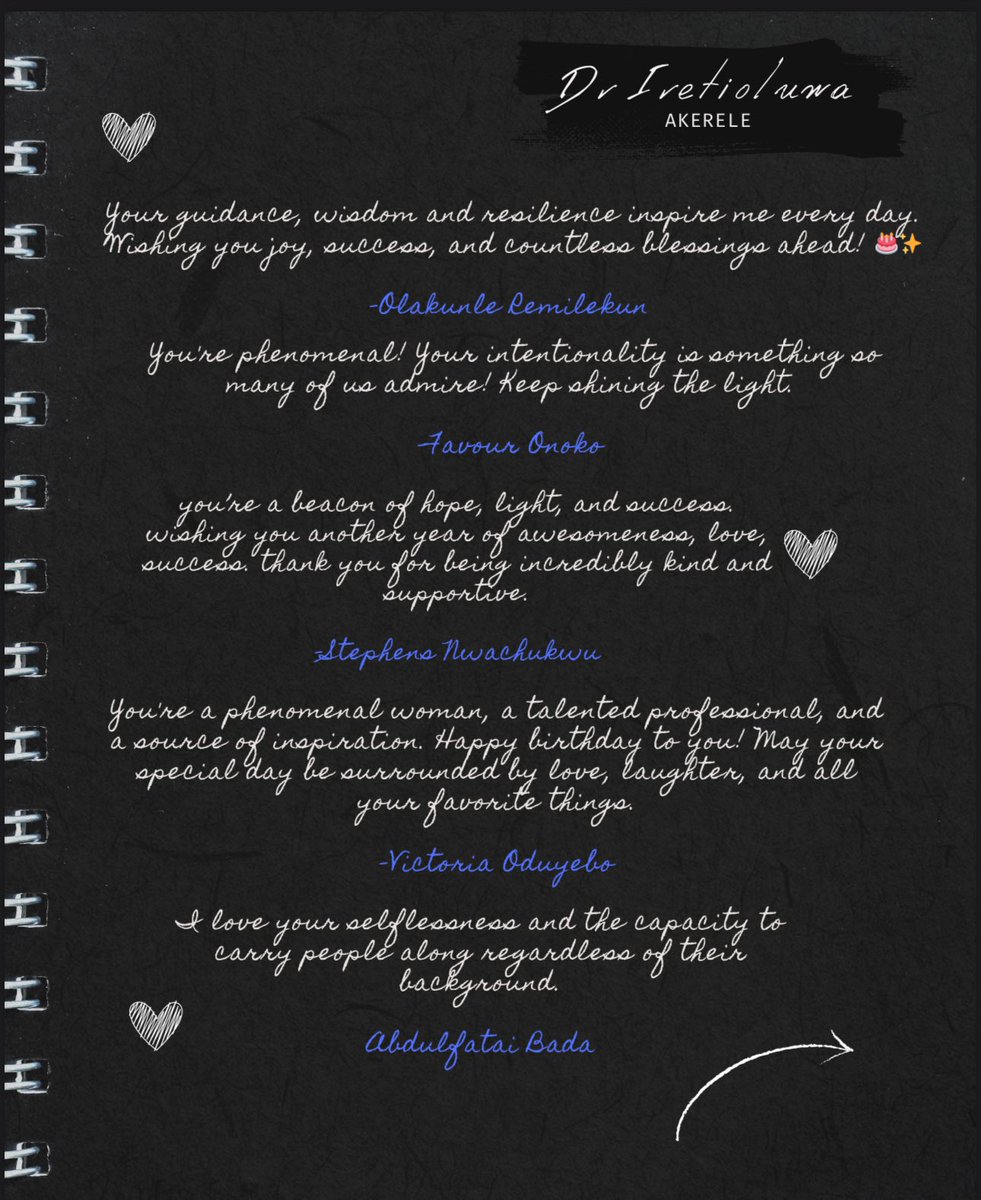 Dr Iretioluwa
AKERELE
Your guidance, wisdom and resilience inspire me every day.
Wishing you joy, success, and countless blessings ahead! 🎂✨
-Olakunle Remilekun
You're phenomenal! Your intentionality is something so
many of us admire! Keep shining the light.
-Favour Onoko
you're a beacon of hope, light, and success.
wishing you another year of awesomeness, love,
success. thank you for being incredibly kind and
supportive.
-Stephens Nwachukwu
You're a phenomenal woman, a talented professional, and
a source of inspiration. Happy birthday to you! May your
special day be surrounded by love, laughter, and all
your favorite things.
-Victoria Oduyebo
I love your selflessness and the capacity to
carry people along regardless of their
background.
Abdulfatai Bada